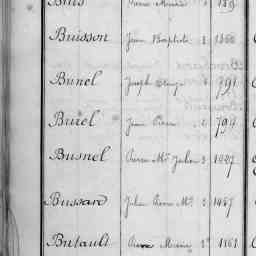 Buis Pierre Marie 189
Buisson Jean Baptiste 2 1360
Bunel Joseph 791
Burel Jean Pierre 2 799
Busnel Pierre Mie Julien 3 1927
Bussard Julien Pierre Mie 3 1487
Butault Pierre Marie 1161